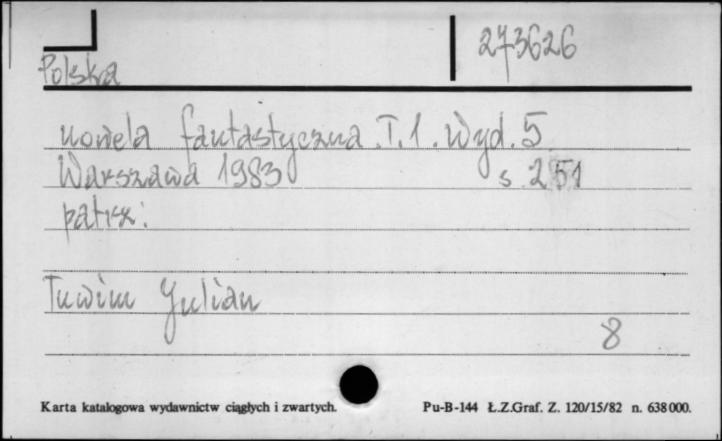 273626
Polska
nowela fantastyczna. T. 1. Wyd. 5
Warszawa 1983 s. 251
patrz:
Tuwim Julian
8
Karta katalogowa wydawnictw ciągłych i zwartych. Pu-B-144 Ł.Z.Graf. Z. 120/15/82 n. 638000.